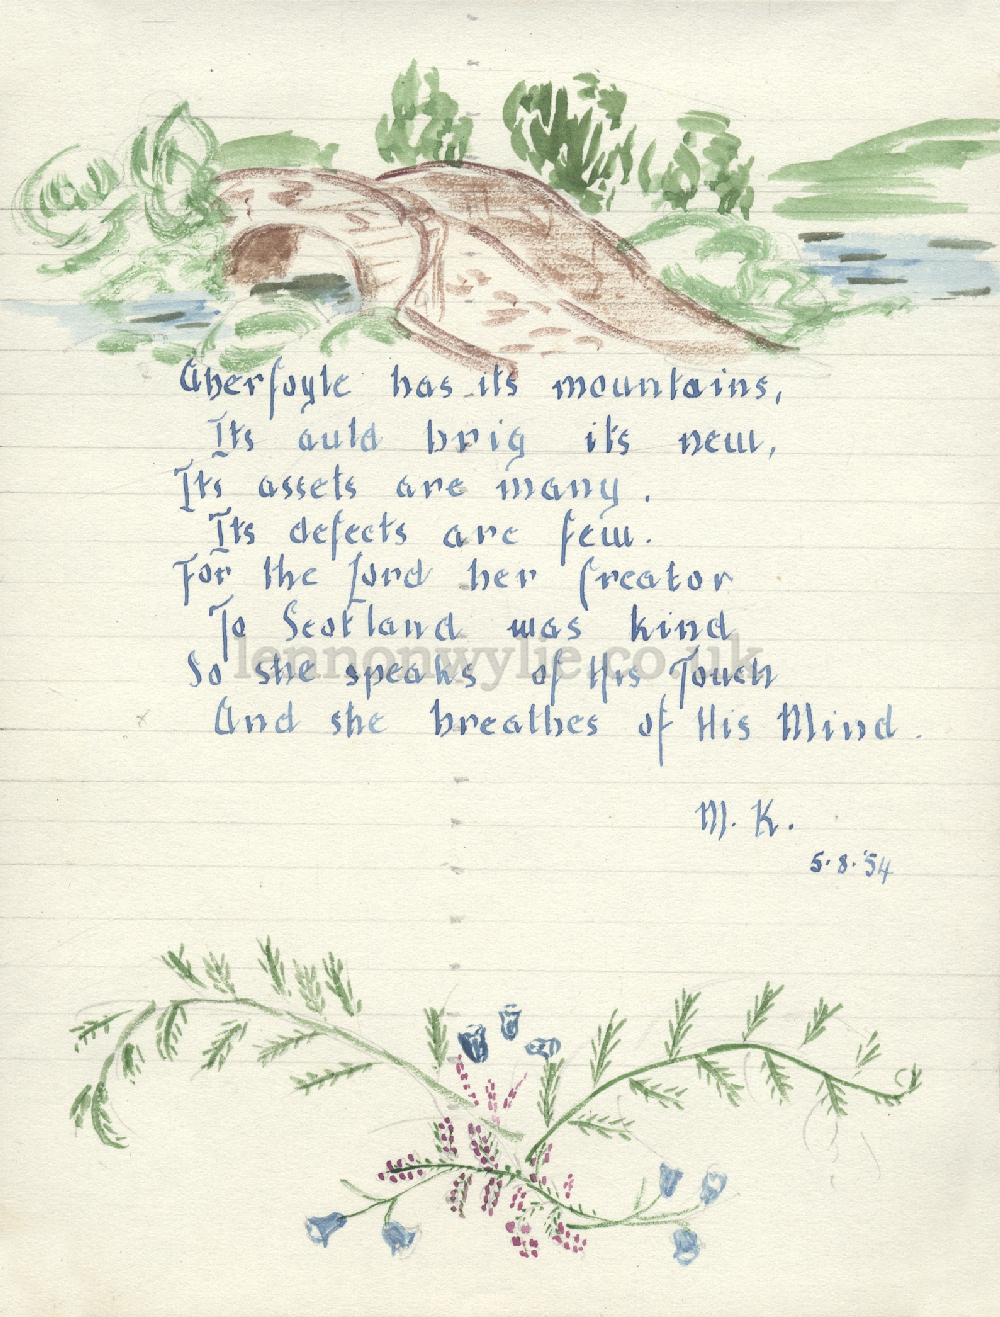 Aberfoyle has its mountains,
Its auld brig it's new,
Its assets are many.
Its defects are few.
For the Lord her Creator
To Scotland was kind
lennonwylie.co.uk
So she speaks of His Touch
And she breathes of His Mind.
M. K.
5·8·'54